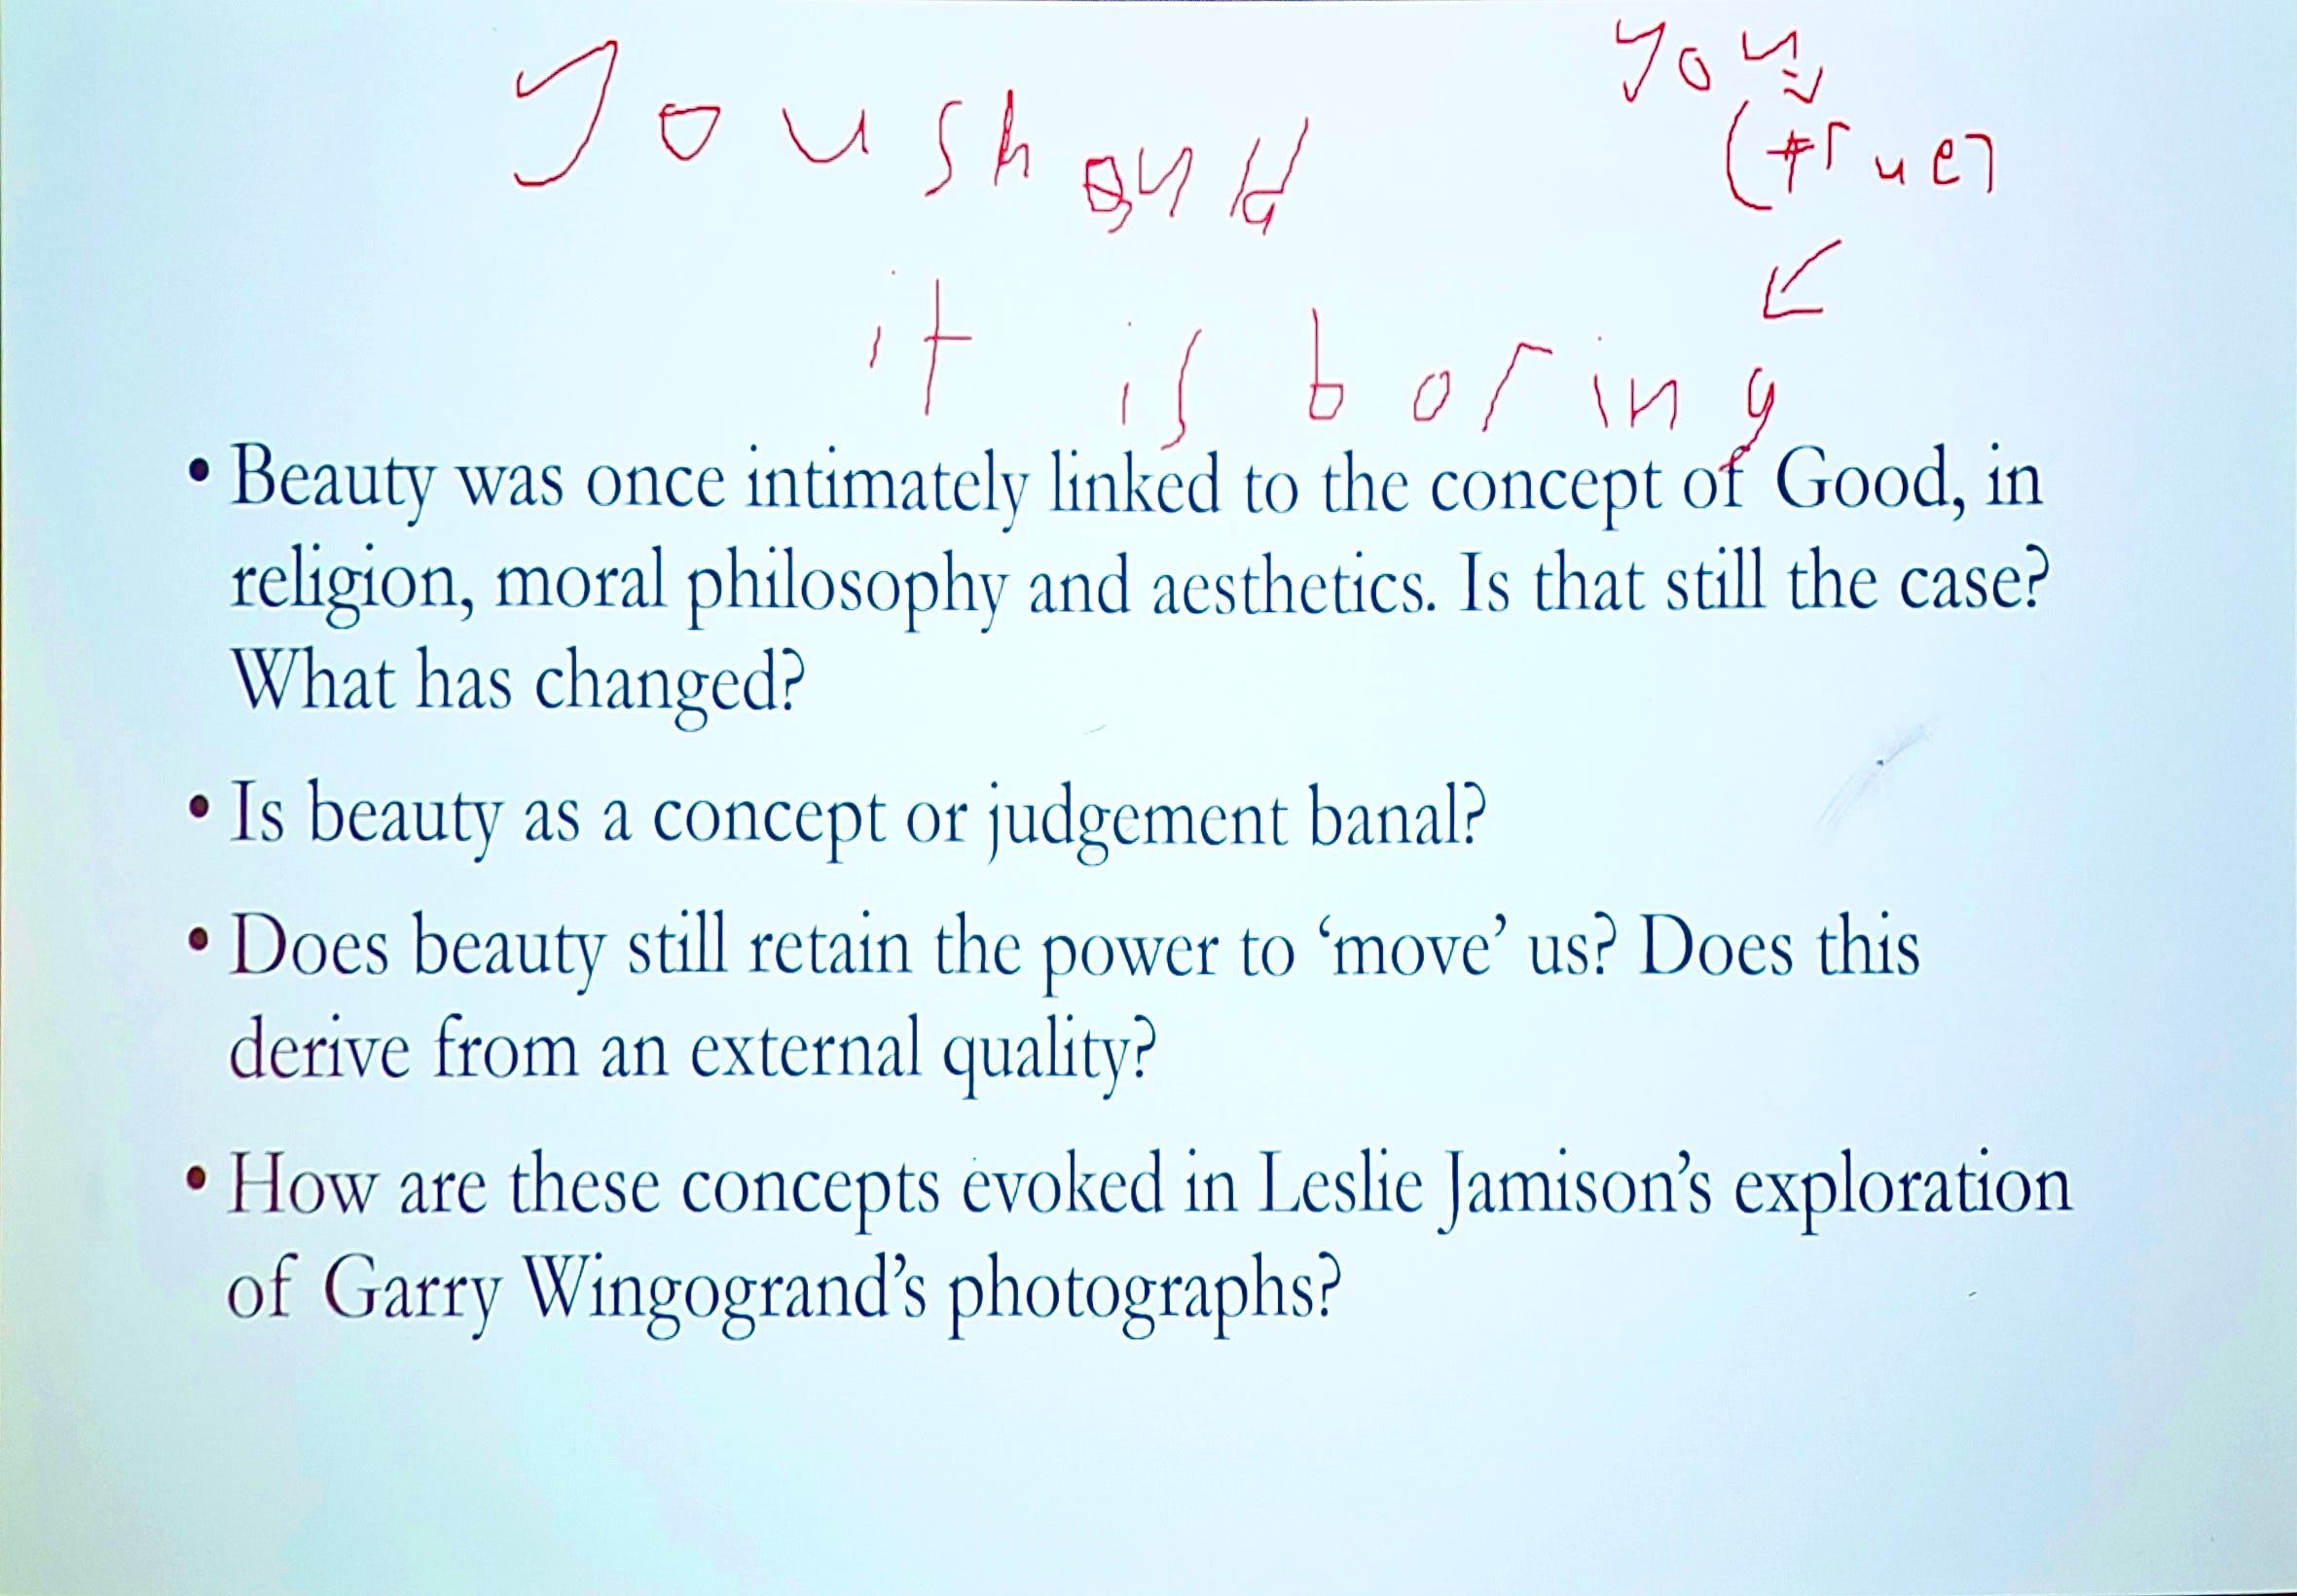 you
you should
(true)
it is boring
• Beauty was once intimately linked to the concept of Good, in
religion, moral philosophy and aesthetics. Is that still the case?
What has changed?
• Is beauty as a concept or judgement banal?
• Does beauty still retain the power to ‘move’ us? Does this
derive from an external quality?
• How are these concepts evoked in Leslie Jamison’s exploration
of Garry Wingogrand’s photographs?